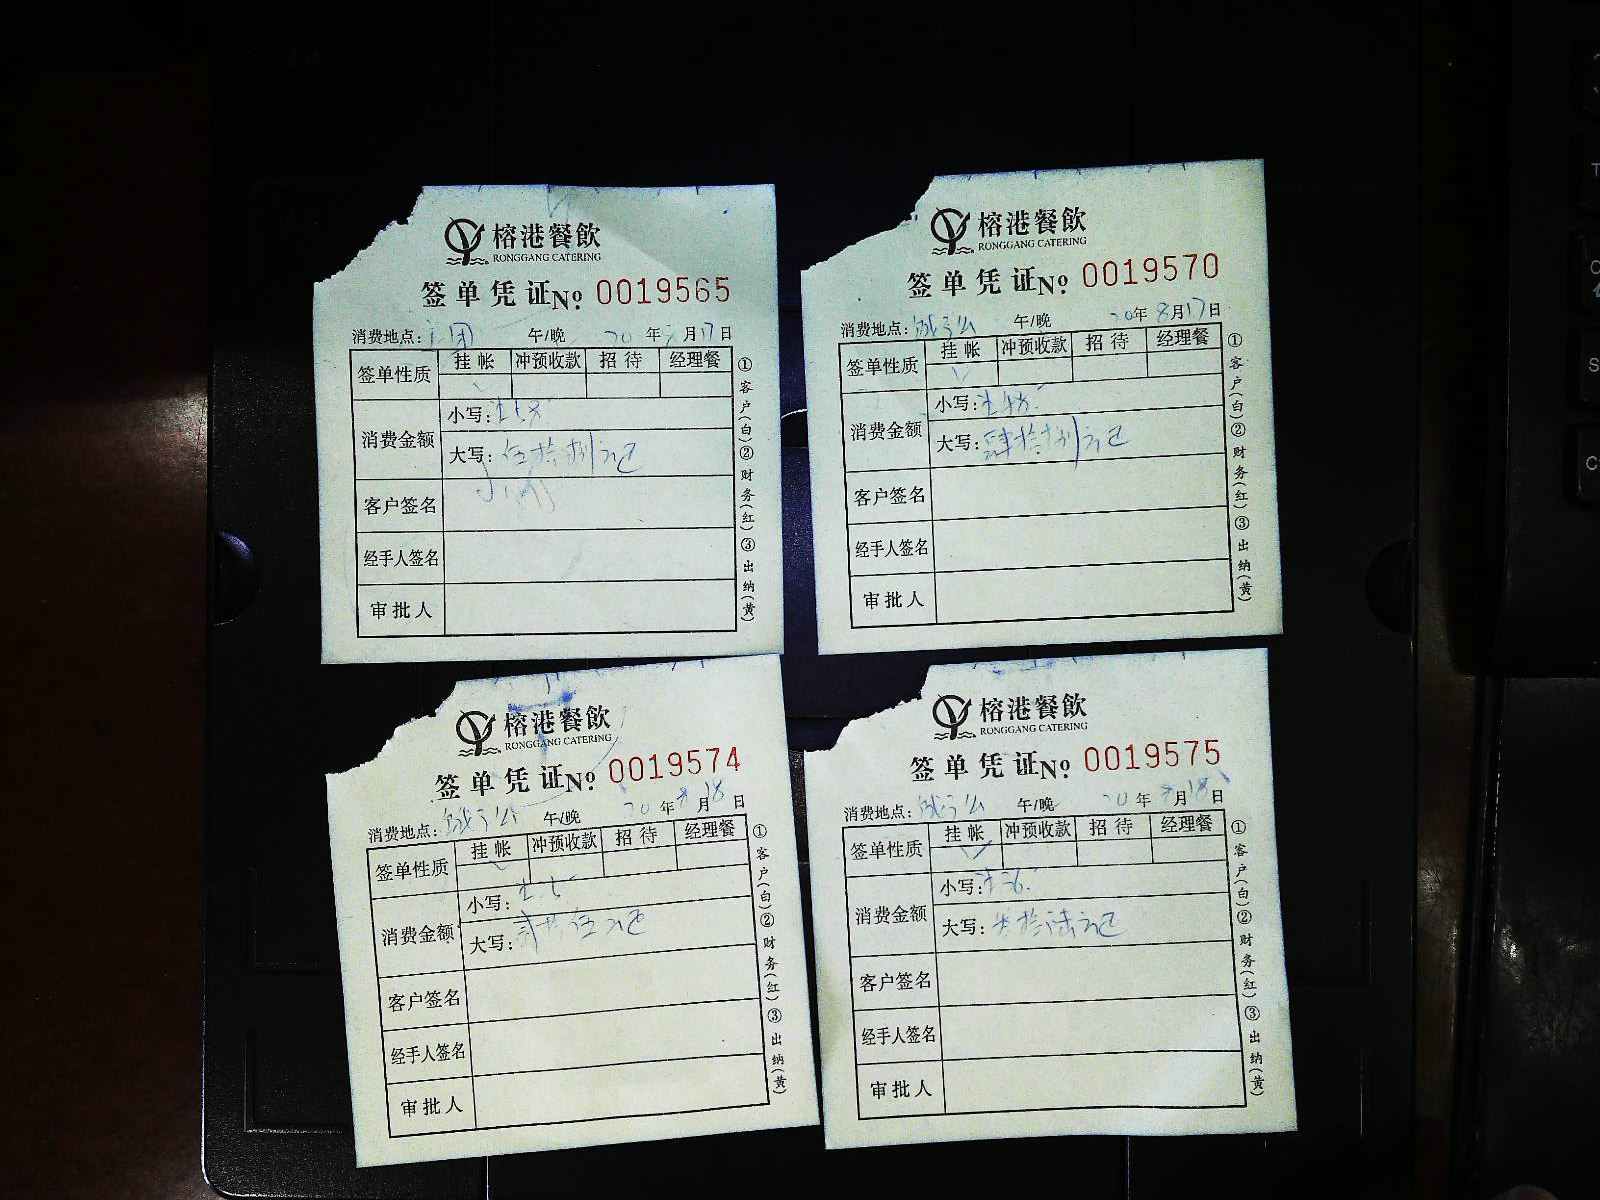 榕港餐飲
RONGGANG CATERING
签单凭证No 0019565
消费地点: 午/晚 20年8月17日
签单性质 挂帐 冲预收款 招待 经理餐
消费金额 小写:
大写: 伍拾捌元
客户签名
经手人签名
审批人
①客户(白)②财务(红)③出纳(黄)
榕港餐飲
RONGGANG CATERING
签单凭证No 0019570
消费地点: 午/晚 20年8月17日
签单性质 挂帐 冲预收款 招待 经理餐
消费金额 小写:
大写: 肆拾捌元
客户签名
经手人签名
审批人
①客户(白)②财务(红)③出纳(黄)
榕港餐飲
RONGGANG CATERING
签单凭证No 0019574
消费地点: 午/晚 20年8月18日
签单性质 挂帐 冲预收款 招待 经理餐
消费金额 小写:
大写: 贰拾伍元
客户签名
经手人签名
审批人
①客户(白)②财务(红)③出纳(黄)
榕港餐飲
RONGGANG CATERING
签单凭证No 0019575
消费地点: 午/晚 20年8月18日
签单性质 挂帐 冲预收款 招待 经理餐
消费金额 小写:
大写: 拾陆元
客户签名
经手人签名
审批人
①客户(白)②财务(红)③出纳(黄)